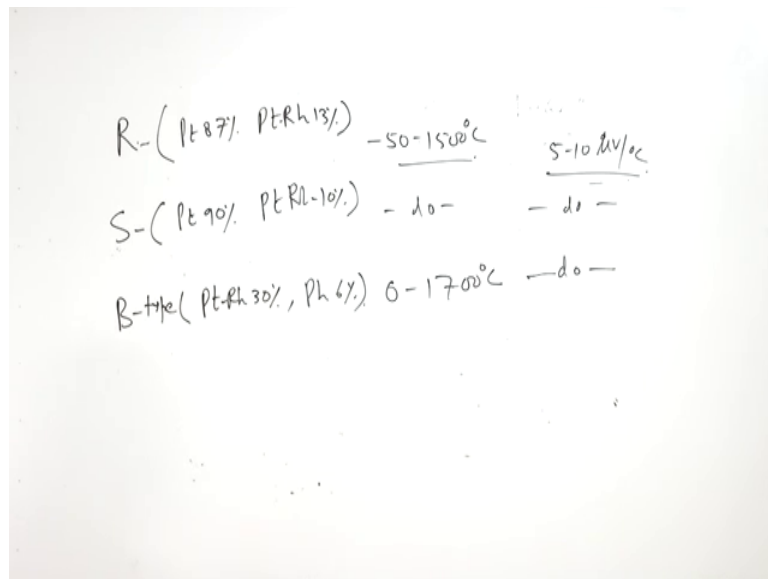 R-(Pt 87% Pt-Rh 13%) -50-1500°C 5-10 μV/°C
S-(Pt 90% Pt Rh-10%) - do - - do -
B-type( Pt-Rh 30%, Ph 6%) 0-1700°C - do -